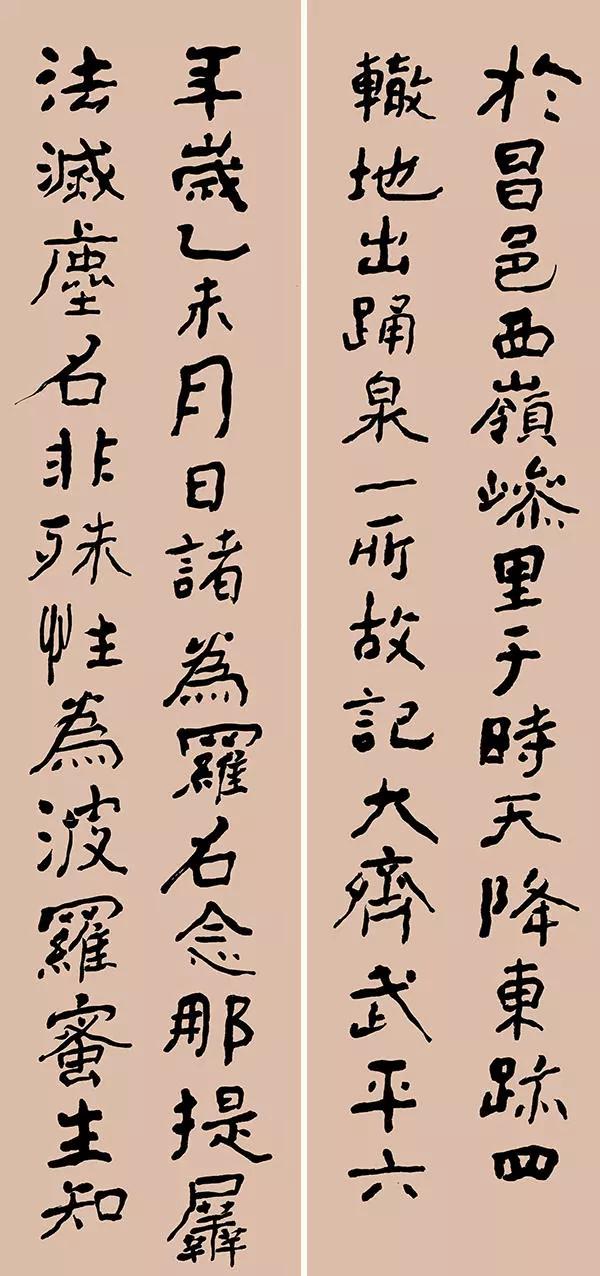 於昌邑西嶺嵾里于時天降東跡四
轍地出踊泉一所故記大齊武平六
年歲乙未月日諸為羅名念那提羼
法滅塵名非殊性為波羅蜜生知